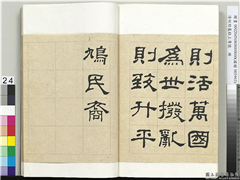 則活萬國
為世撥亂
則致升平
鳩民裔
24